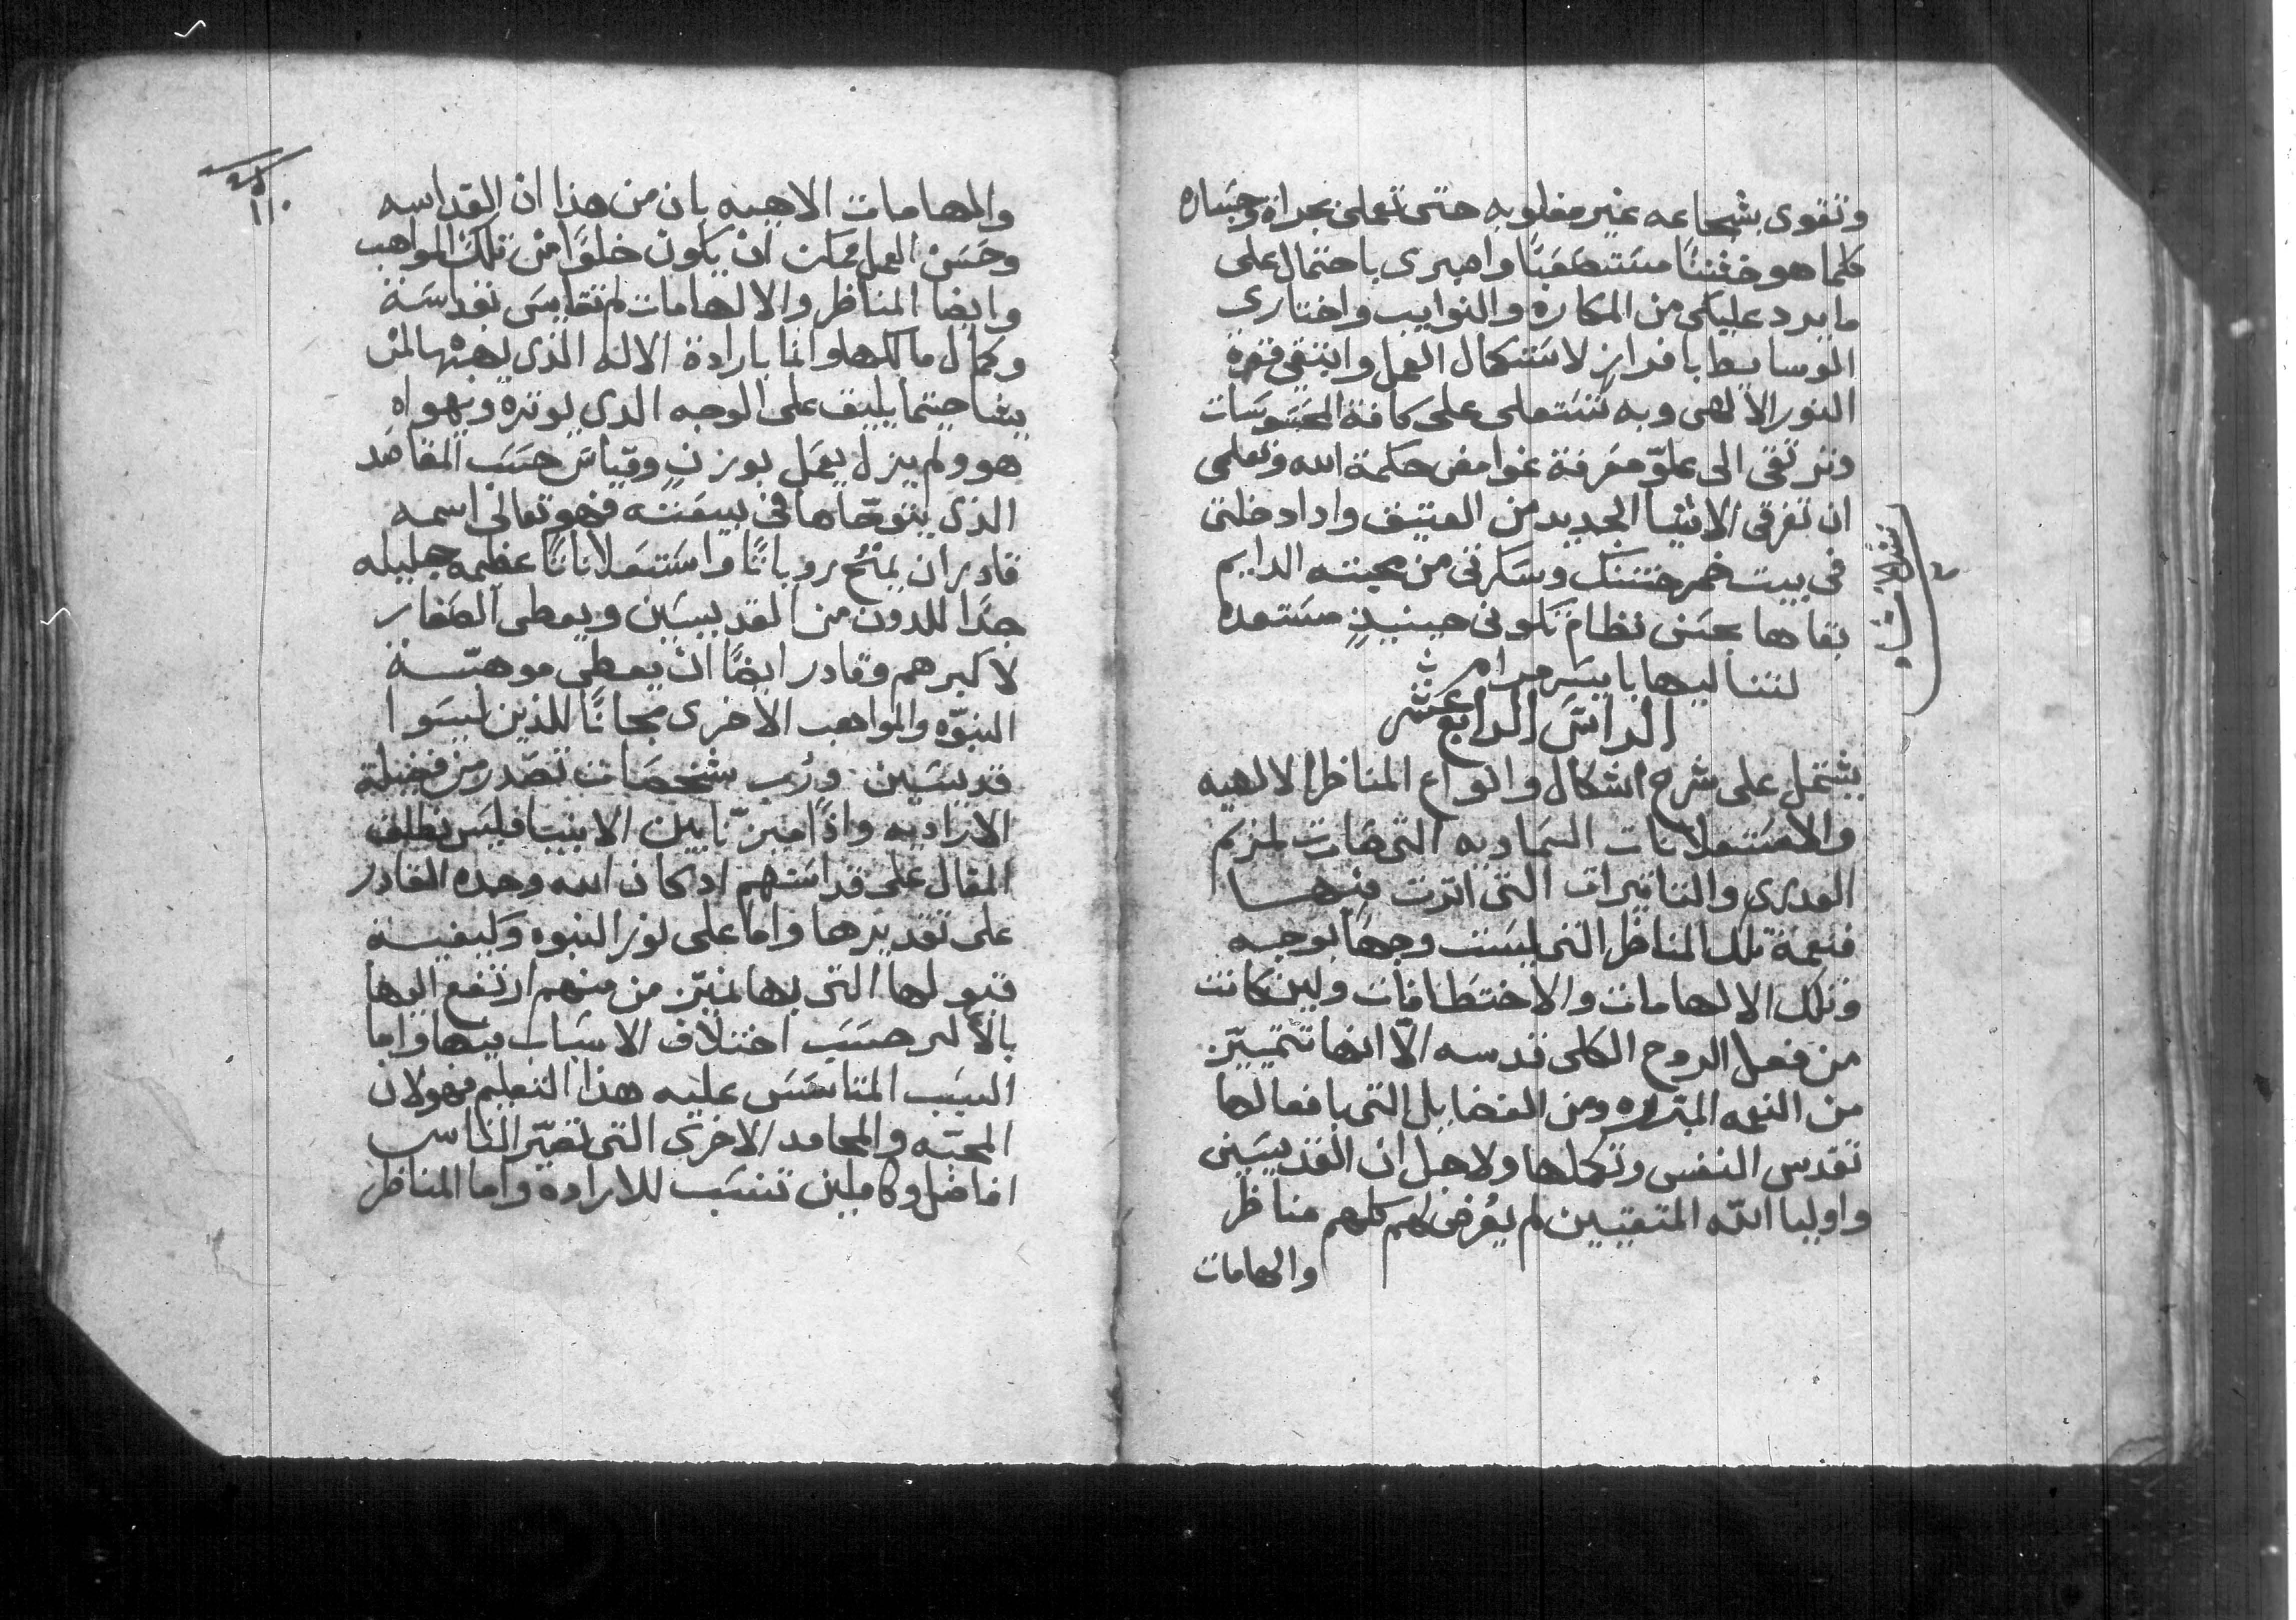 وتقوى بشجاعه غير مغلوبه حتى تعملى بجراة وجساره
كلما هو خفتيًا مستصعبًا واصبرى باحتمال على
ما يرد عليكى من المكاره والنوايب واختارى
الوسايط بافراز لاستكمال العمل وابتغى قفوة
النور الالهى وبه تستعلى على كافة المحسوسات
وترتقى الى علوّ معرفة غوامض حكمة الله وتعلمى
ان تفرقى الاشيا الجديد من العتيق واداد خلتى
فى بيت خمر ختنك وسكرتى من محبته الدايم
بقاها بحسن نظام تكونى حينيذٍ مستعده
لتتنا ليها بايسر مرام
الراس الرابع عشر
يشتمل على شرح اشكال وانواع المناظر الالهيه
والاستعلانات السماويه التى صارت لمريم
العدرى والتاثيرات التى اثرت فيها
فنعمة تلك المناظر التى ليست وجهًا بوجه
وتلك الالهامات والاختطافات ولين كانت
من فعل الروح الكلى قدسه الّا انها تتميّز
من النعمه المبرره ومن الفضايل التى بافعالها
تقدس النفس وتكملها ولاجل ان القديسين
واوليا الله المتقيين لم يعرض لهم كلهم مناظر
والهامات
والهامات الاهيه بان من هذا ان القداسه
وحسن العمل ممكن ان يكون خلوًا من تلك المواهب
وايضا المناظر والالهامات لم تقايس بقداسة
وكمال مالكها وانما بارادة الاله الذى يهبها لمن
يشا حيتما يليق على الوجه الدى يوتره ويهواه
هو ولم يزل يعمل بوزنٍ وقياس حسب المقاصد
الذى يتوخّاها فى بيعته فهو تعالى اسمه
قادر ان يمنح روياتًا واستعلاناتًا عظيمه جليله
جدًا للدون من القديسين ويعطى الصغار
لاكبرهم وقادر ايضًا ان يعطى موهبة
النبوّه والمواهب الاخرى مجانًا للذين ليسوا
قديسين ورُب شخصات تصدر من فضيلة
الاراديه واذا ميزنا بين الانبيا فليس نطلق
المقال على قداستهم ادكان الله وحده القادر
على تقديرها واما على نور النبوه وكيفية
قبولها التى بها نميّز من منهم ارتفع اليها
بالاكتر حسب اختلاف الاسباب فيها واما
السبب المتاسس عليه هذا التعليم فهو لان
المحبّه والمحامد الاخرى التى تصيّر الناس
افاضل وكاملين تنسب للارادة واما المناظر